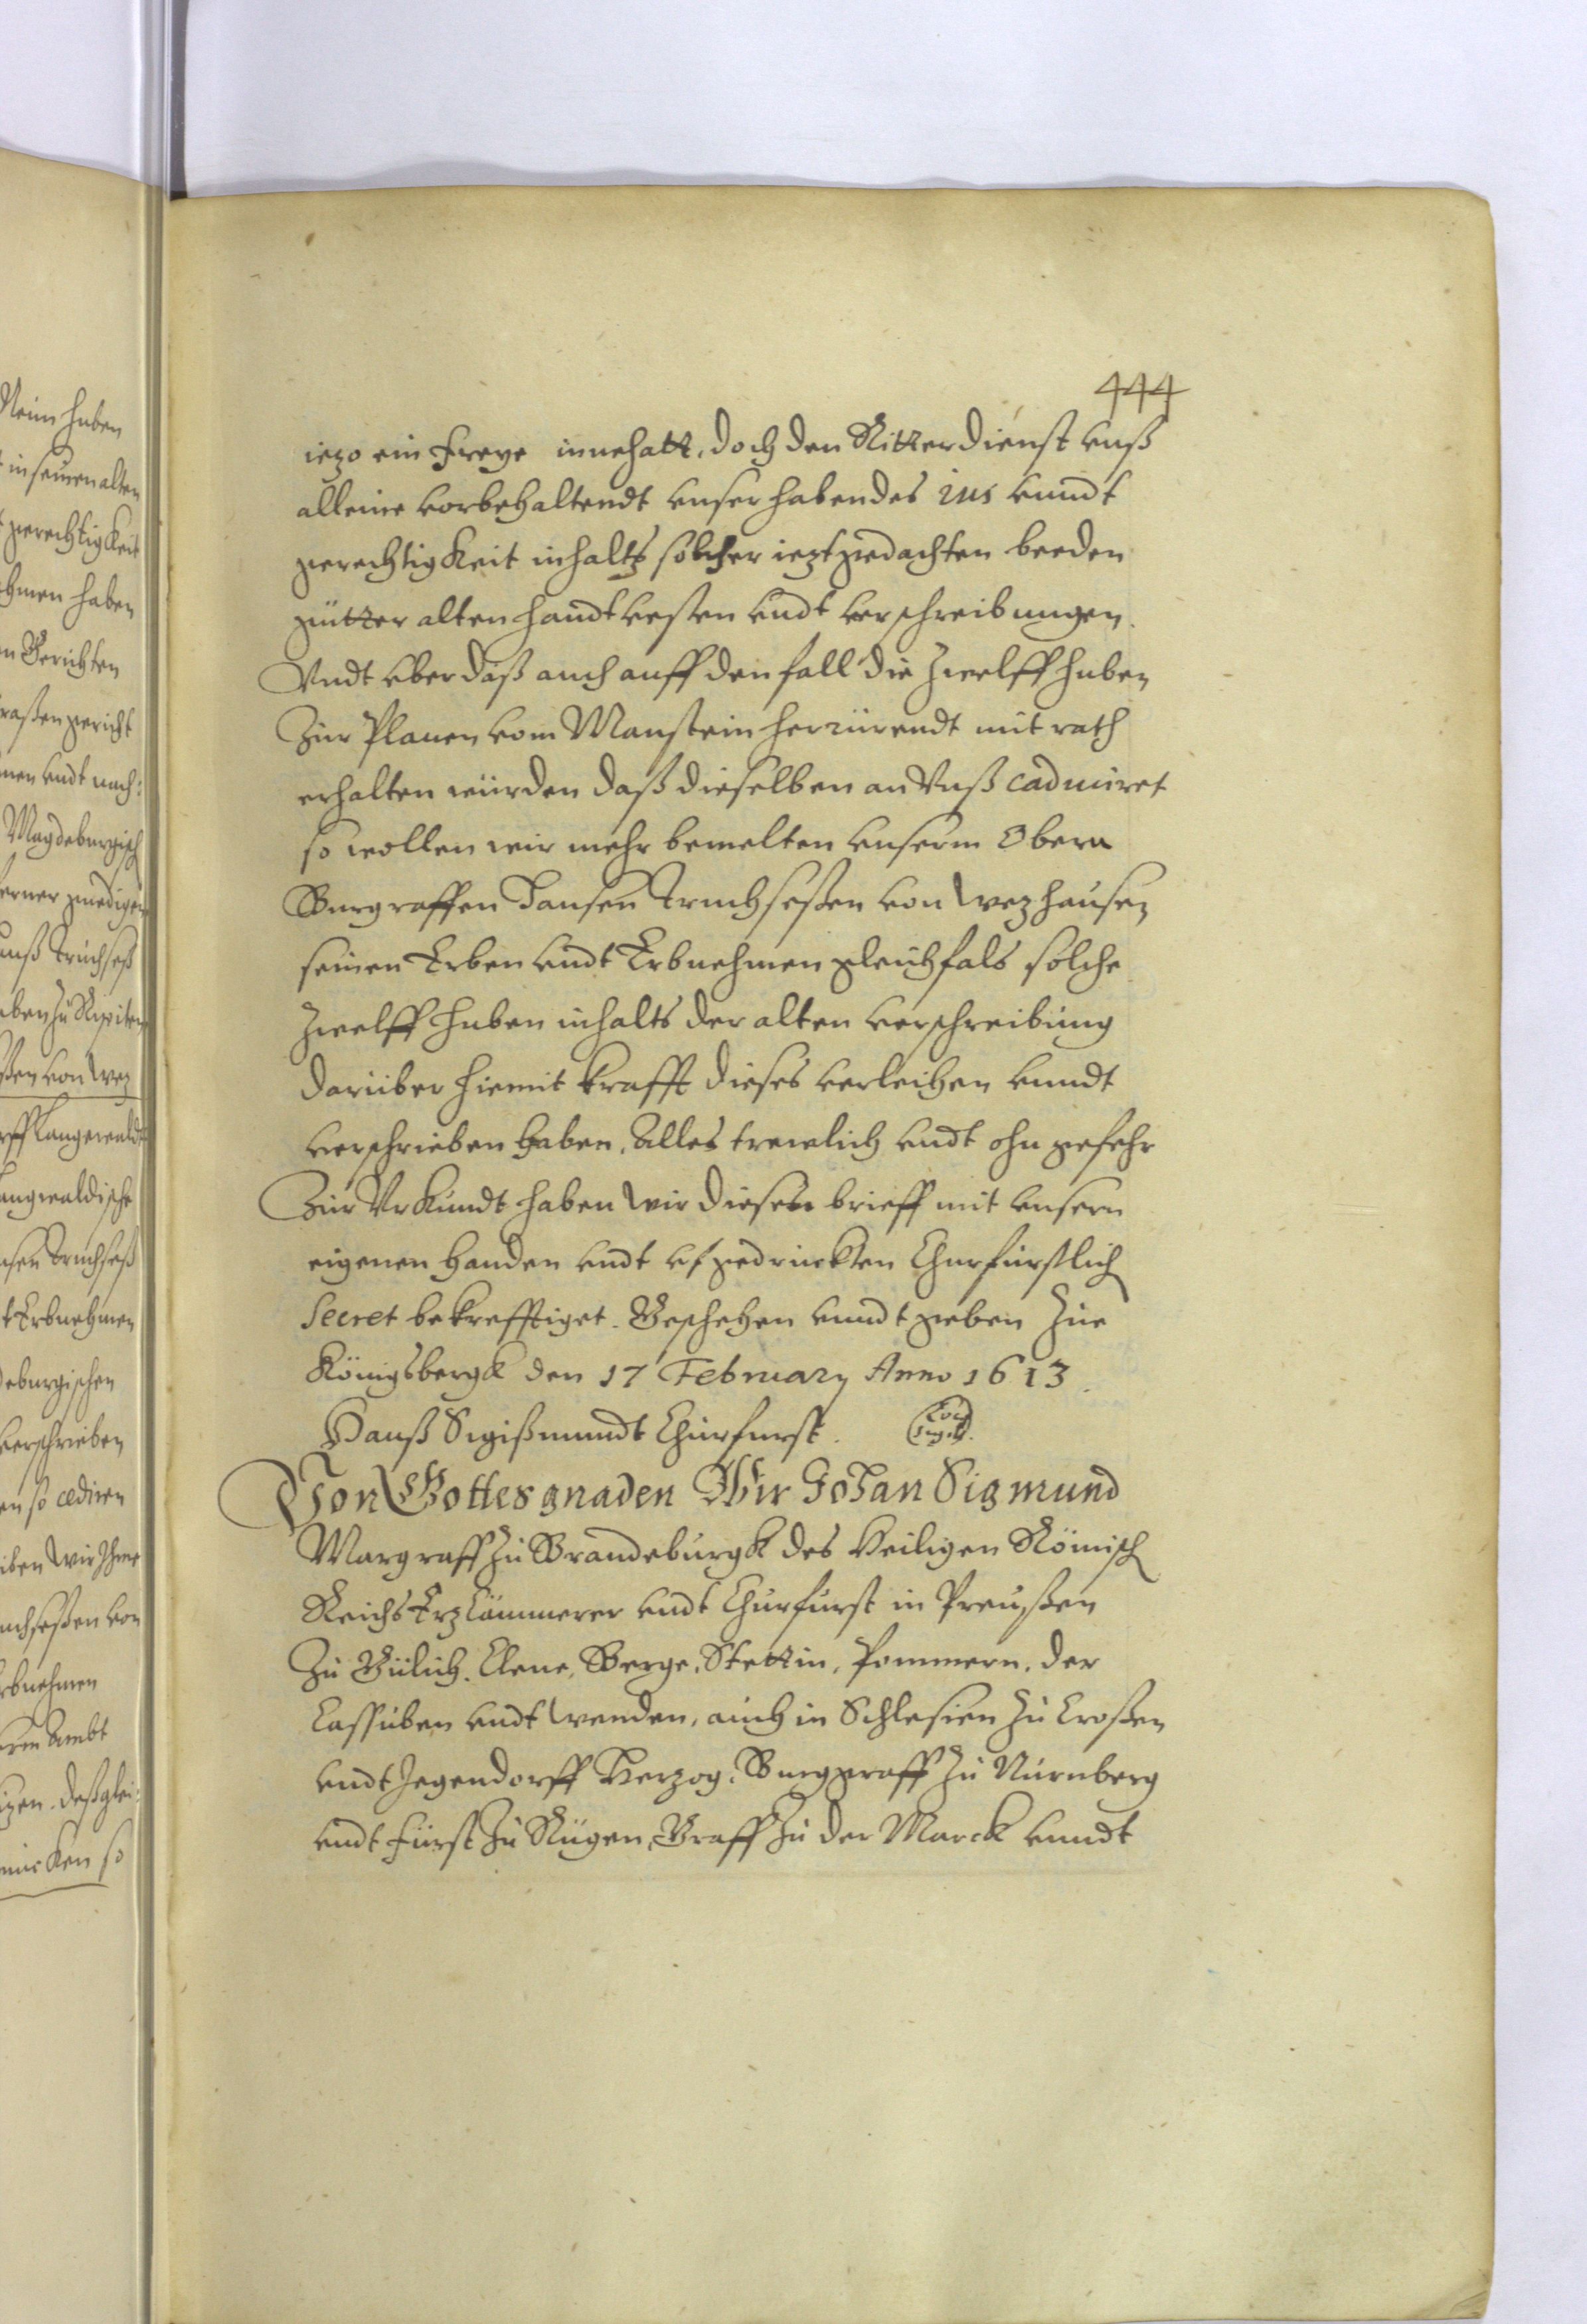 444
iezo ein Freye innehatt, doch den Ritterdienst vnß
alleine vorbehaltendt vnser habendes ius vnndt
gerechtigkeit inhaltz solcher ieztgedachten beeden
gütter alten handtvesten vndt verschreibungen.
Vndt vber daß auch auff den fall die zwelff huben
Zur Plauen vom Manstein herrürendt mit rath
erhalten würden daß dieselben an Vnß caduciret
so wollen wir mehr bemelten vnserm Obern
Burgraffen Hansen Truchseßen von Wezhausen
seinen Erben vndt Erbnehmen gleichfals solche
zwelff huben inhalts der alten verschreibung
darüber hiemit krafft dieses verleihen vnndt
verschrieben haben, Alles trewlich vndt ohn gefehr
Zur Vrkundt haben Wir diesen brieff mit vnsern
eigenen handen vndt vfgedruckten Churfürstlich
Secret bekrefftiget. Geschehen vnndt geben Zue
Königsbergk den 17 February Anno 1613.
Hanß Sigißmundt Churfurst. Loc Sigill.
Von Gottes gnaden Wir Johan Sigmund
Margraff zu Brandeburgk des Heiligen Römisch
Reichs Erzcämmerer vndt Churfurst in Preußen
Zu Gülich. Cleue, Berge, Stettin, Pommern, der
Cassuben vndt Wenden, auch in Schlesien zu Croßen
vndt Jegendorff Herzog, Burggraff zu Nürnberg
vndt Fürst zu Rügen, Graff zu der Marck vnndt
Neun huben
in seinen alten
gerechtigkeit
ehmen haben
en Gerichten
raßen gericht
men vndt nach:
Magdeburgisch
ferner gnediger
anß Truchseß
ßen von Wez
rff Langewaldt
angwaldische
nsen Truchseß
t Erbnehmen
deburgischen
verschrieben
en so cediren
iben Wir Ihme
uchseßen von
rbnehmen
erm Ambt
igen. deßglei:
nicken so